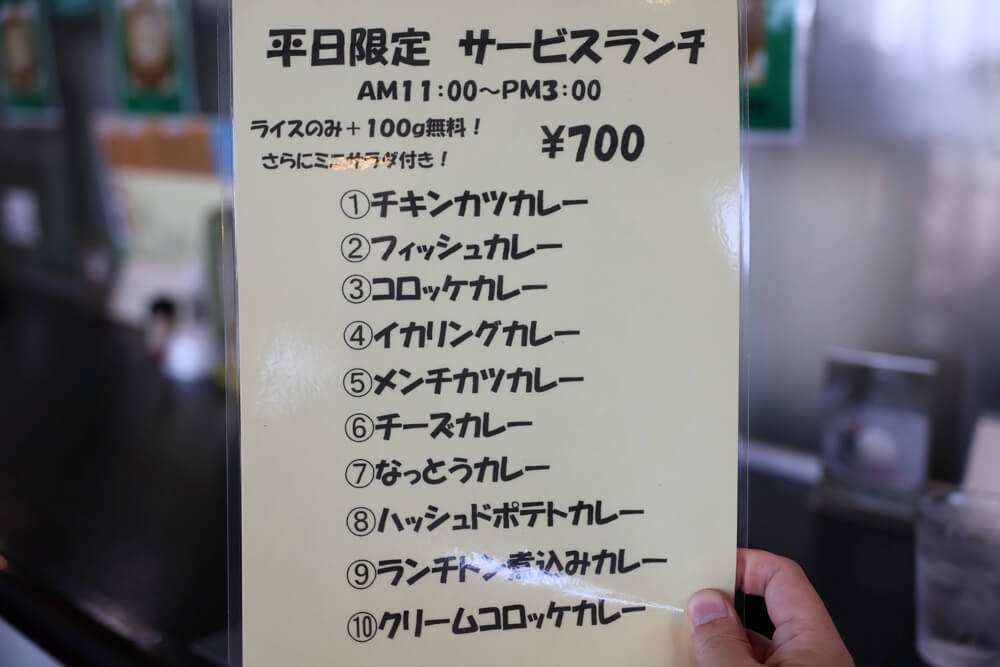 平日限定 サービスランチ
AM11:00～PM3:00
ライスのみ+100g無料!
さらにミニサラダ付き!
¥700
①チキンカツカレー
②フィッシュカレー
③コロッケカレー
④イカリングカレー
⑤メンチカツカレー
⑥チーズカレー
⑦なっとうカレー
⑧ハッシュドポテトカレー
⑨ランチトン煮込みカレー
⑩クリームコロッケカレー